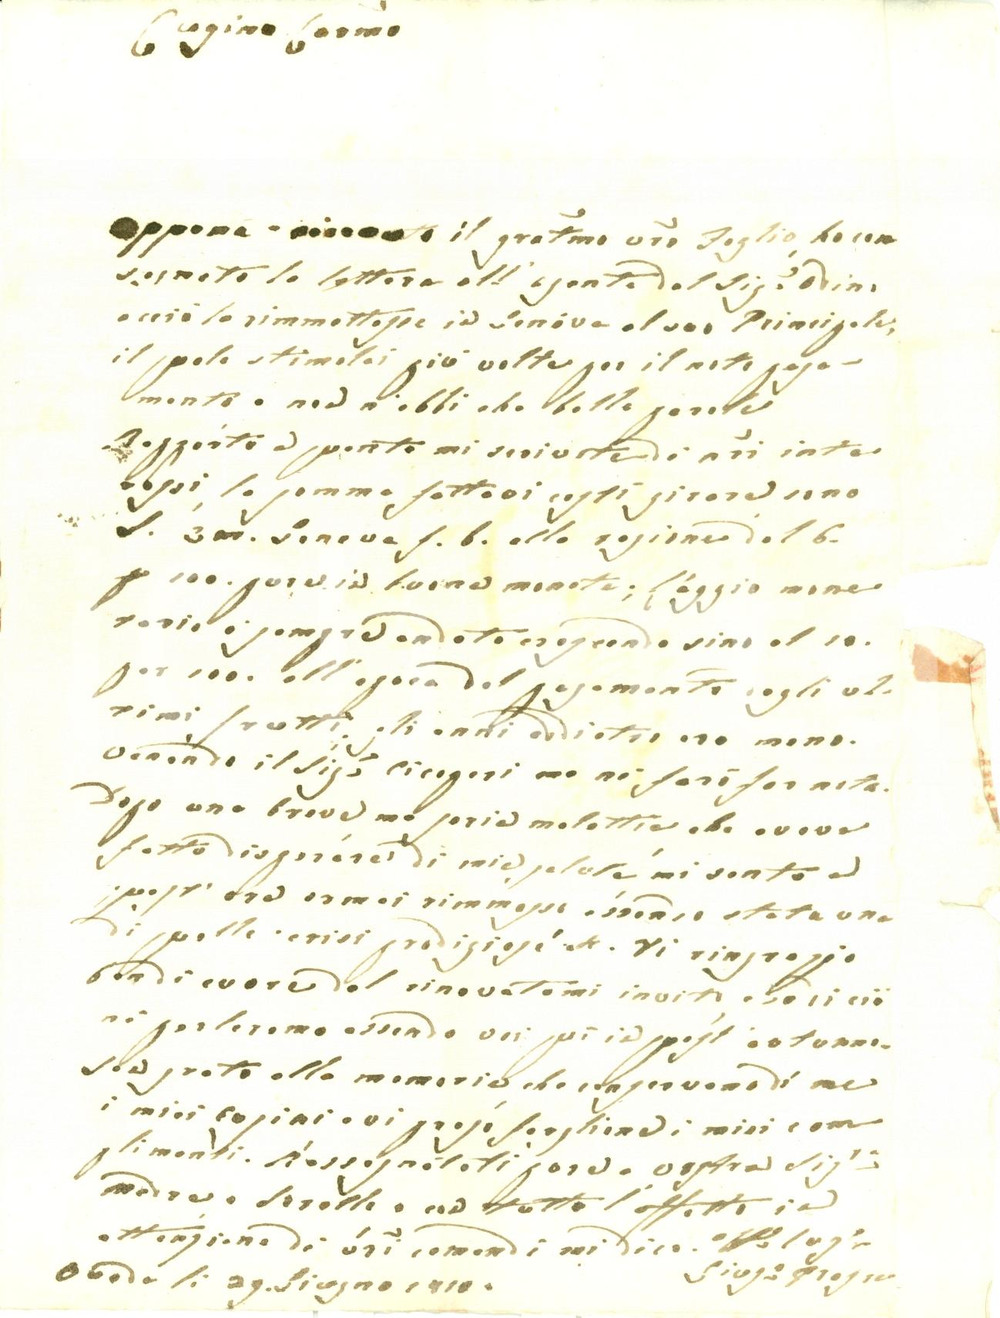 Cugino Carmo
Appena ricevuto il gratmo vro foglio, ho con
segnato la lettera all'agente del Sigr Odino
acciò la rimmettesse in Genova al suo Principale,
il quale stimolai più volte per il noto paga-
mento e non n'ebbi che belle parole
Rapporto a quanto mi scrivete di nri inte
ressi, la somma fattavi costì girare sono
L. 300. Genova f. b. alla ragione del 6.
p 100. pure in buona moneta; l'aggio mone
tario è sempre andato crescendo sino al 10.
per 100. all'epoca del pagamento cogli ul-
timi frutti, gli anni addietro era meno.
Venendo il Sigr me ne farò far nota.
Dopo una breve ma seria malattia che aveva
fatto disperare di mia salute mi sento a
quest'ora ormai rimmesso essendo stata una
di quelle crisi prodigiose &. Vi ringrazio
ben di cuore del rinovatomi invito, e di ciò
ne parleremo essendo voi qui in quest'autunno.
Son grato alla memoria che conservano di me
i miei Cugini e vi prego far gliene i miei com
plimenti. Rassegnateli pure a vostra Sigra
madre e Sorelle e con tutto l'affetto in
attenzione di vri comandi mi dico. Affo Cugo
Ovada li 29. Giugno 1810.